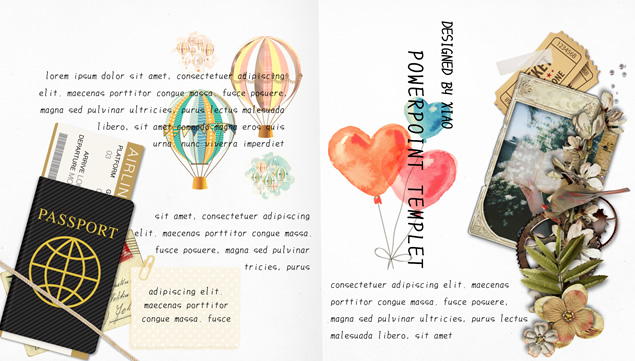 lorem ipsum dolor sit amet, consectetuer adipiscing
elit. maecenas porttitor congue massa. fusce posuere,
magna sed pulvinar ultricies, purus lectus malesuada
libero, sit amet commodo magna eros quis
urna. nunc viverra imperdiet
AIRLIN
PLATFORM
03
ARRIVE
DEPARTURE
PASSPORT
sit amet, consectetuer adipiscing
elit. maecenas porttitor congue massa.
fusce posuere, magna sed pulvinar
tricies, purus
adipiscing elit.
maecenas porttitor
congue massa. fusce
DESIGNED BY XIAO
POWERPOINT TEMPLET
consectetuer adipiscing elit. maecenas
porttitor congue massa. fusce posuere,
magna sed pulvinar ultricies, purus lectus
malesuada libero, sit amet